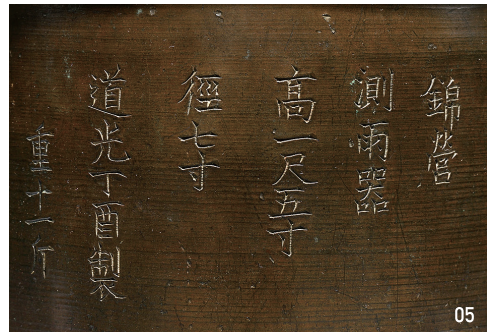 錦營
測雨器
高一尺五寸
徑七寸
道光丁酉製
重十一斤
05